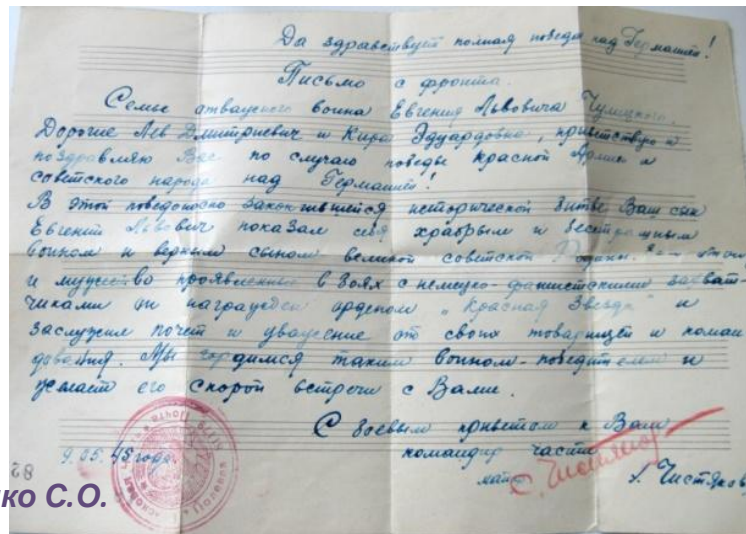 Да здравствует полная победа над Германией!
Письмо с фронта.
Семье отважного воина Евгения Львовича
Дорогие Лев Дмитриевич и Кира Эдуардовна, приветствую и
поздравляю Вас по случаю победы Красной Армии и
советского народа над Германией!
В этой победоносно закончившейся исторической битве Ваш сын
Евгений Львович показал себя храбрым и бесстрашным
воином и верным сыном великой советской Родины. За
и мужество проявленные в боях с немецко-фашистскими захват-
чиками он награжден орденом „Красная Звезда" и
заслужил почет и уважение от своих товарищей и коман
дования. Мы гордимся таким воином-победителем и
желаем его скорой встречи с Вами.
С боевым приветом к Вам
9.05.45 года.
командир части
Чистяков
82
ко С.О.